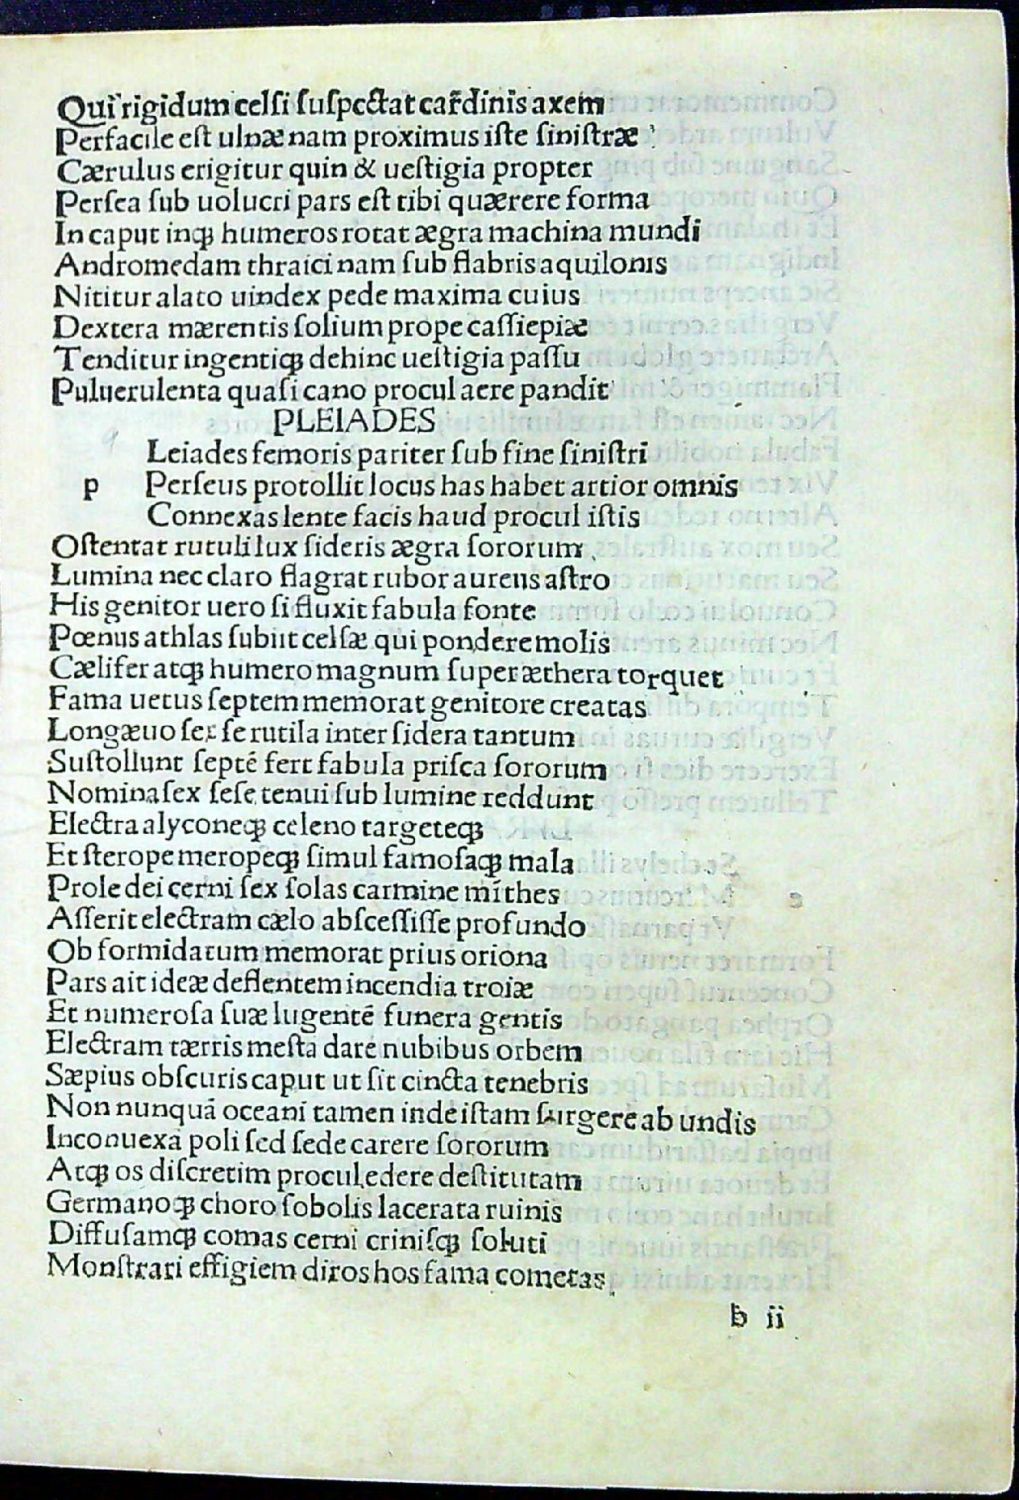 Qui rigidum celsi suspectat cardinis axem
Perfacile est ulnæ nam proximus iste sinistræ
Cærulus erigitur quin & uestigia propter
Persea sub uolucri pars est tibi quærere forma
In caput inqꝫ humeros rotat ægra machina mundi
Andromedam thraici nam sub flabris aquilonis
Nititur alato uindex pede maxima cuius
Dextera mærentis solium prope cassiepiæ
Tenditur ingentiqꝫ dehinc uestigia passu
Puluerulenta quasi cano procul aere pandit
PLEIADES
Leiades femoris pariter sub fine sinistri
p Perseus protollit locus has habet artior omnis
Connexas lente facis haud procul istis
Ostentat rutuli lux sideris ægra sororum
Lumina nec claro flagrat rubor aureus astro
His genitor uero si fluxit fabula fonte
Pœnus athlas subiit celsæ qui pondere molis
Cælifer atqꝫ humero magnum super æthera torquet
Fama uetus septem memorat genitore creatas
Longæuo sex se rutila inter sidera tantum
Sustollunt septē fert fabula prisca sororum
Nomina sex sese tenui sub lumine reddunt
Electra alyconeqꝫ celeno targeteqꝫ
Et sterope meropeqꝫ simul famosaqꝫ mala
Prole dei cerni sex solas carmine mīthes
Asserit electram cælo abscessisse profundo
Ob formidatum memorat prius oriona
Pars ait ideæ deflentem incendia troiæ
Et numerosa suæ lugentē funera gentis
Electram tærris mesta dare nubibus orbem
Sæpius obscuris caput ut sit cincta tenebris
Non nunquā oceani tamen inde istam surgere ab undis
Inconuexa poli sed sede carere sororum
Atqꝫ os discretim procul edere destitutam
Germanoqꝫ choro sobolis lacerata ruinis
Diffusamqꝫ comas cerni crinisqꝫ soluti
Monstrari effigiem diros hos fama cometas
b ii